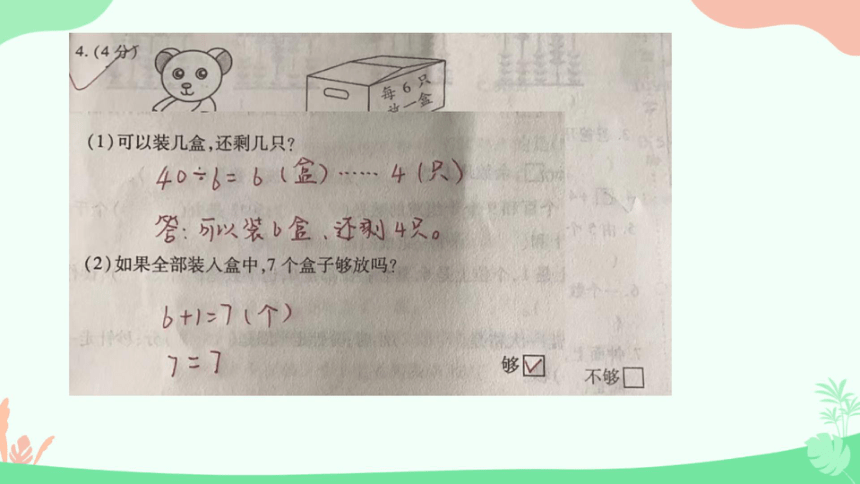 4. (4分)
每6只
放一盒
(1)可以装几盒,还剩几只?
40÷6=6(盒)……4(只)
答:可以装6盒、还剩4只。
(2)如果全部装入盒中,7个盒子够放吗?
6+1=7(个)
7=7
够☑
不够☐